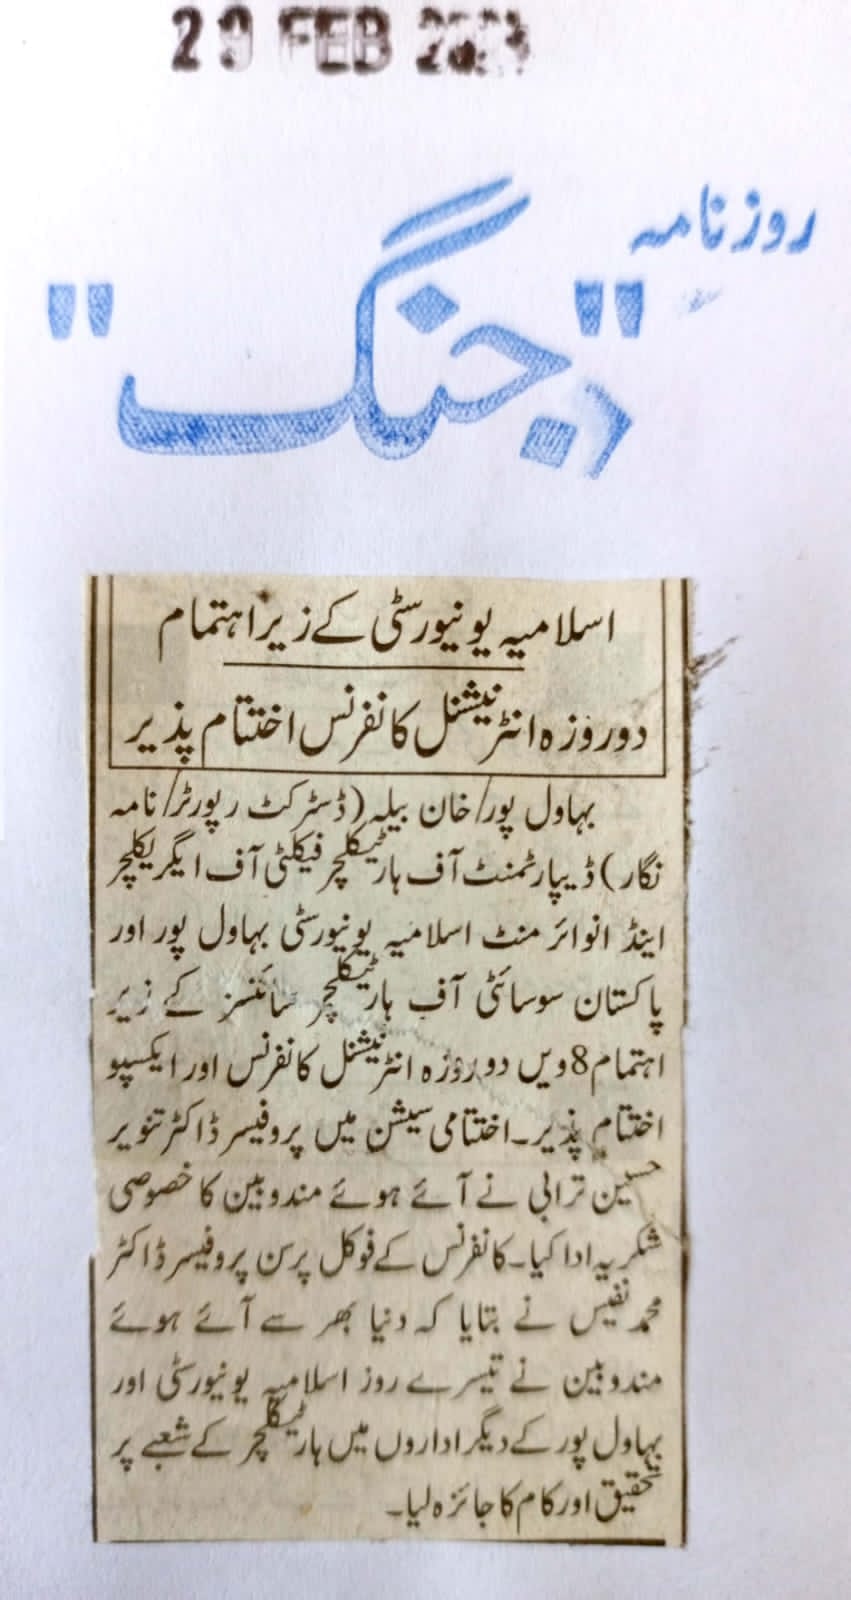 29 FEB
روزنامہ
"جنگ"
اسلامیہ یونیورسٹی کے زیر اہتمام
دو روزہ انٹرنیشنل کانفرنس اختتام پذیر
بہاول پور/خان بیلہ (ڈسٹرکٹ رپورٹر/نامہ
نگار) ڈیپارٹمنٹ آف ہارٹیکلچر فیکلٹی آف ایگریکلچر
اینڈ انوائرمنٹ اسلامیہ یونیورسٹی بہاول پور اور
پاکستان سوسائٹی آف ہارٹیکلچر سائنسز کے زیر
اہتمام 8ویں دو روزہ انٹرنیشنل کانفرنس اور ایکسپو
اختتام پذیر۔ اختتامی سیشن میں پروفیسر ڈاکٹر تنویر
حسین ترابی نے آئے ہوئے مندوبین کا خصوصی
شکریہ ادا کیا۔ کانفرنس کے فوکل پرسن پروفیسر ڈاکٹر
محمد نفیس نے بتایا کہ دنیا بھر سے آئے ہوئے
مندوبین نے تیسرے روز اسلامیہ یونیورسٹی اور
بہاول پور کے دیگر اداروں میں ہارٹیکلچر کے شعبے پر
تحقیق اور کام کا جائزہ لیا۔